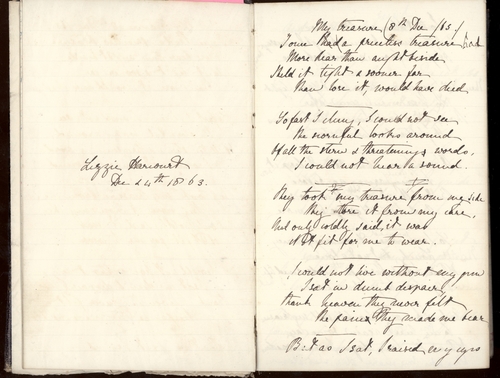 Lizzie Harcourt
Dec 24th 1863.
My treasure (8th Dec /63)
I once had a priceless treasure
More dear than aught beside
I held it tight & sooner far
Than lose it, would have died
So fast I clung, I could not see
the scornful looks around
Of all the stern & threatening words,
I could not hear a sound.
They took my treasure from my side
They tore it from my care,
And only coldly said, it was
n't fit for me to wear.
I could not live without my gem
I sat in dumb despair,
thank heaven they never felt
the pain they made me bear
But as I sat, I raised my eyes